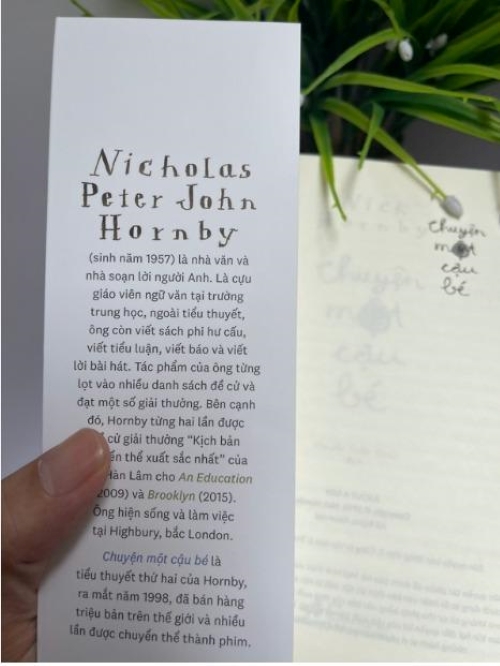 Nicholas
Peter John
Hornby
(sinh năm 1957) là nhà văn và
nhà soạn lời người Anh. Là cựu
giáo viên ngữ văn tại trường
trung học, ngoài tiểu thuyết,
ông còn viết sách phi hư cấu,
viết tiểu luận, viết báo và viết
lời bài hát. Tác phẩm của ông từng
lọt vào nhiều danh sách đề cử và
đạt một số giải thưởng. Bên cạnh
đó, Hornby từng hai lần được
cử giải thưởng “Kịch bản
thể xuất sắc nhất” của
Hàn Lâm cho An Education
2009) và Brooklyn (2015).
Ông hiện sống và làm việc
tại Highbury, bắc London.
Chuyện một cậu bé là
tiểu thuyết thứ hai của Hornby,
ra mắt năm 1998, đã bán hàng
triệu bản trên thế giới và nhiều
lần được chuyển thể thành phim.
chuyện
một
cậu
bé